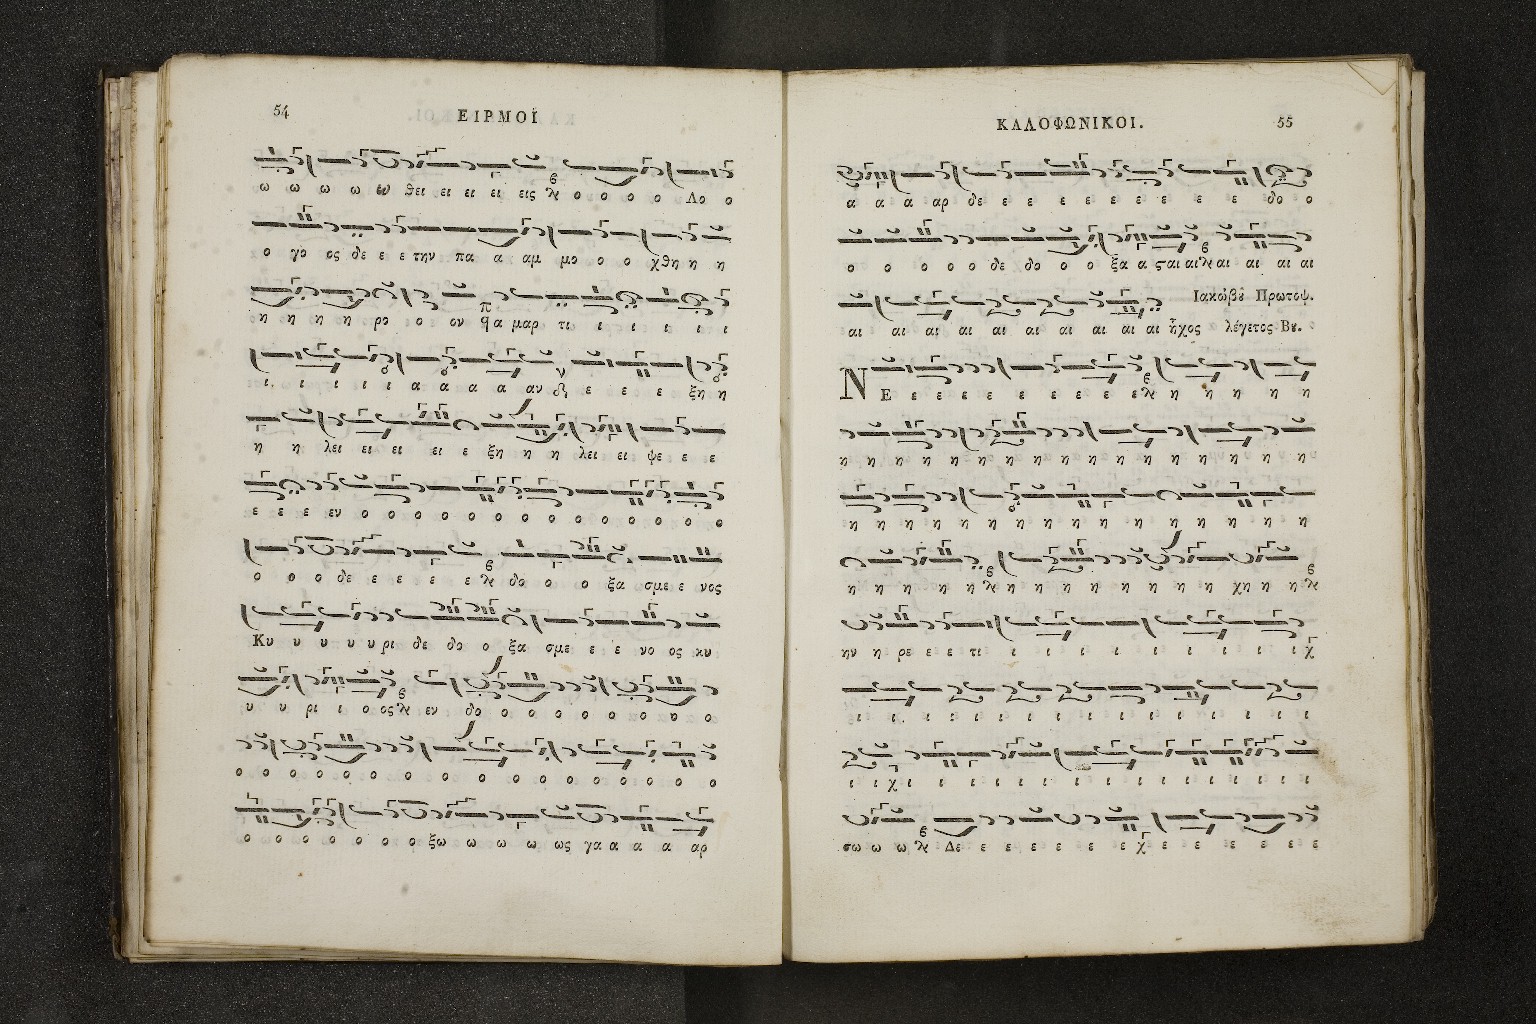 54
ΕΙΡΜΟΪ
ω ω ω ω ω θει ει ει ει εις ο ο ο ο Λο ο
ο γο ος δε ε ε την πα α αμ μο ο ο χθη η η
η η η η ρο ο ον α μαρ τι ι ι ι ι ι
ι ι ι ι ι α α α α αν ε ε ε ξη η
η η λει ει ει ει ε ξη η η λει ει ψε ε ε
ε ε ε εν ο ο ο ο ο ο ο ο ο ο ο ο ο ο
ο ο ο δε ε ε ε ε δο ο ο ξα σμε ε νος
Κυ υ υ υ υ ρι δε δο ο ξα σμε ε ε νο ος κυ
υ υ ρι ι ο ος εν δο ο ο ο ο ο ο ο ο
ο ο ο ο ο ο ο ο ο ο ο ο ο ο ο ο ο
ο ο ο ο ο ο ο ξω ω ω ω ως γα α α α αρ
ΚΑΛΟΦΩΝΙΚΟΙ.
55
α α α αρ δε ε ε ε ε ε ε ε ε ε δο ο
ο ο ο ο ο δε δο ο ο ξα α ς αι αι αι αι αι αι
Ιακώβȣ Πρωτοψ.
αι αι αι αι αι αι αι αι αι αι ἦχος λέγετος Βȣ.
ΝΕ ε ε ε ε ε ε ε ε η η η η η
η η η η η η η η η η η η η η η η η
η η η η η η η η η η η η η η η η η
η η η η η η η η η η η η η χη η η
ην η ρε ε ε τι ι ι ι ι ι ι ι ι ι
ι ι ι ι ι ι ι ι ι ι ι ι ι ι ι
ι ι ι ι ι ι ι ι ι ι ι ι ι ι ι ι
σω ω ω Δε ε ε ε ε ε ε ε ε ε ε ε ε